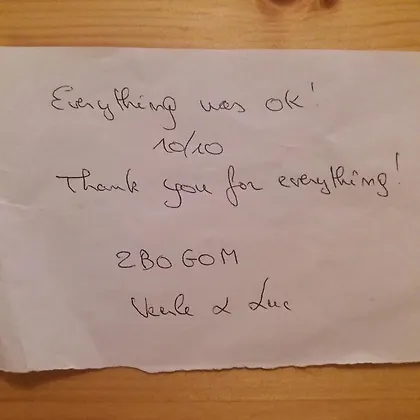 Everything was OK!
10/10
Thank you for everything!
ZBOGOM
Veerle & Luc